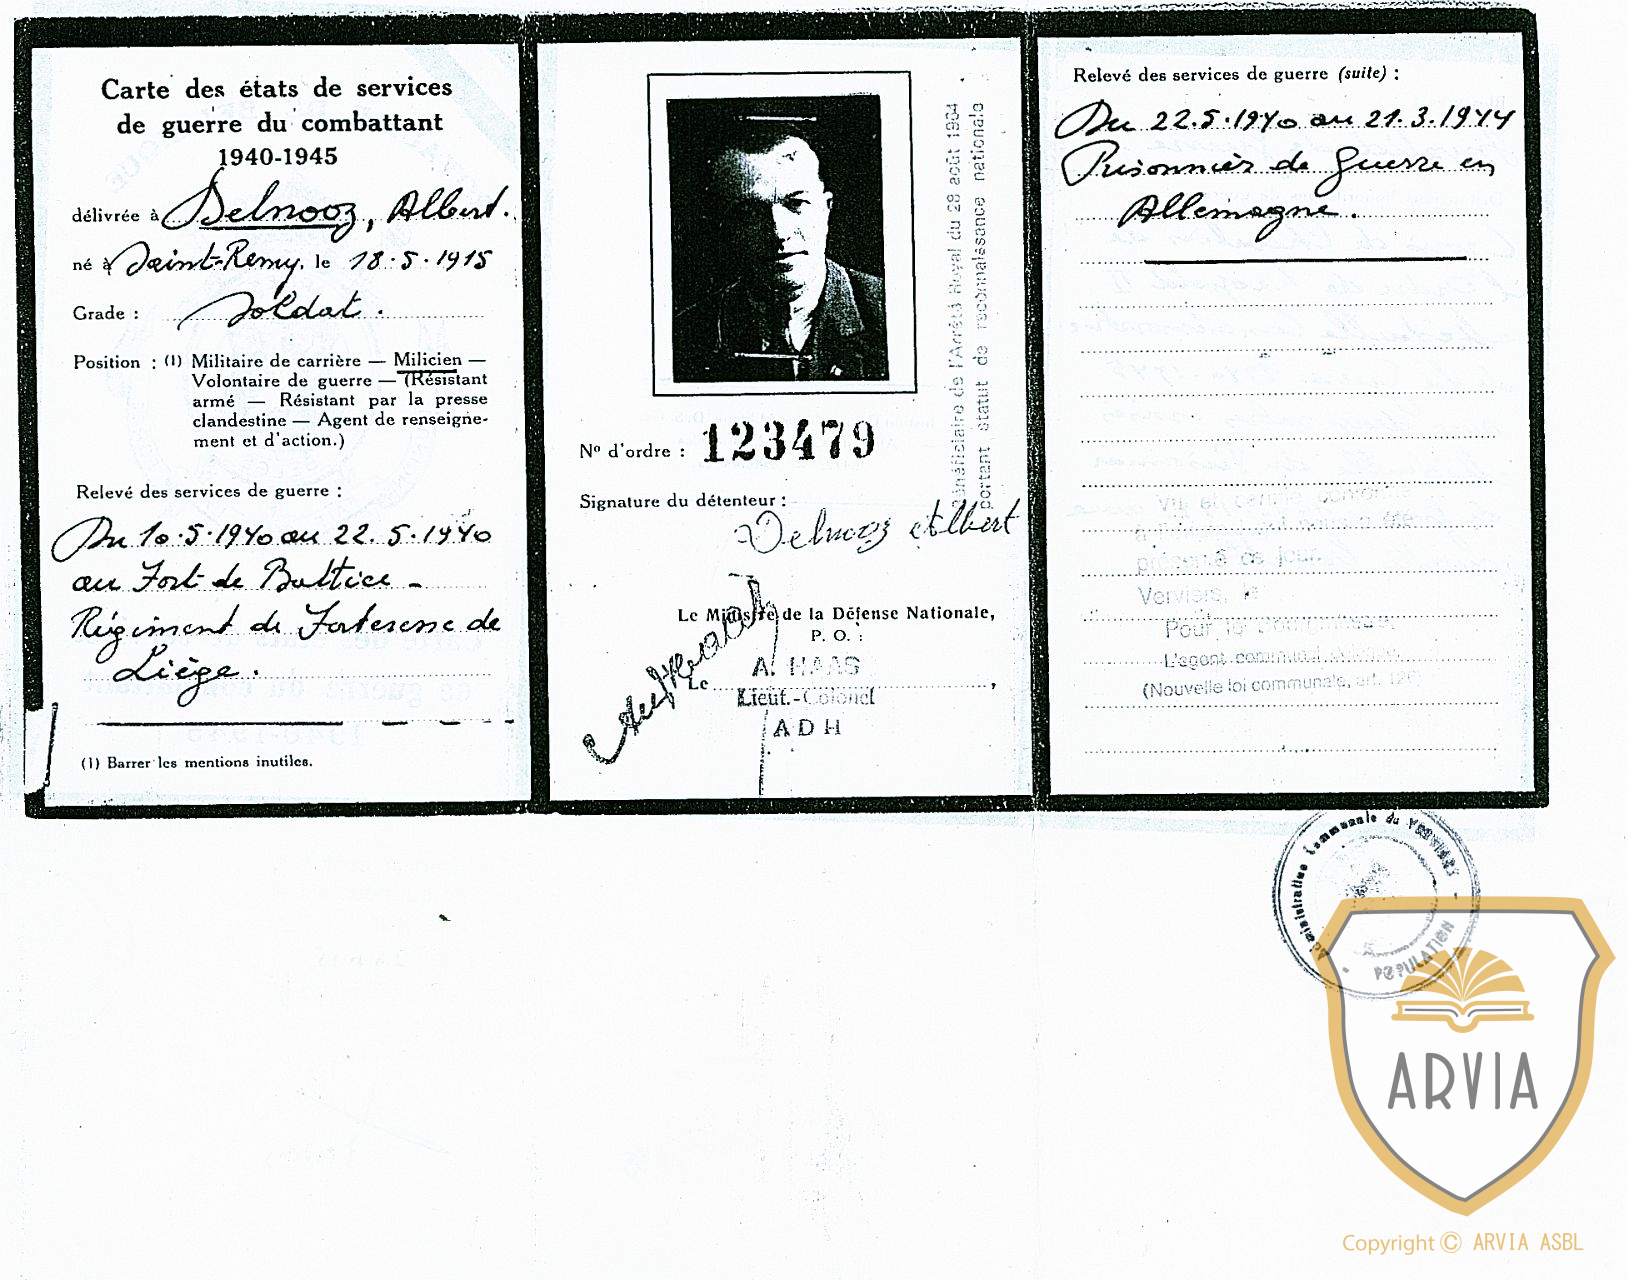 Carte des états de services
de guerre du combattant
1940-1945
délivrée à Delnooz, Albert.
né à Saint-Remy, le 18.5.1915
Grade : Soldat.
Position : (1) Militaire de carrière — Milicien —
Volontaire de guerre — (Résistant
armé — Résistant par la presse
clandestine — Agent de renseigne-
ment et d'action.)
Relevé des services de guerre :
Du 10.5.1940 au 22.5.1940
au Fort de Battice -
Régiment de Forteresse de
Liège.
(1) Barrer les mentions inutiles.
Nº d'ordre : 123479
Signature du détenteur :
Delnooz Albert
Le Ministre de la Défense Nationale,
P. O. :
A. HAAS
Le ,
Lieut.-Colonel
ADH
Bénéficiaire de l'Arrêté Royal du 28 août 1964
portant statut de reconnaissance nationale
Relevé des services de guerre (suite) :
Du 22.5.1940 au 21.3.1944
Prisonnier de guerre en
Allemagne.
présenté ce jour.
Verviers, le
Pour
L'agent communal
(Nouvelle loi communale, art. 126)
Administration Communale de VERVIERS
POPULATION
ARVIA
Copyright © ARVIA ASBL